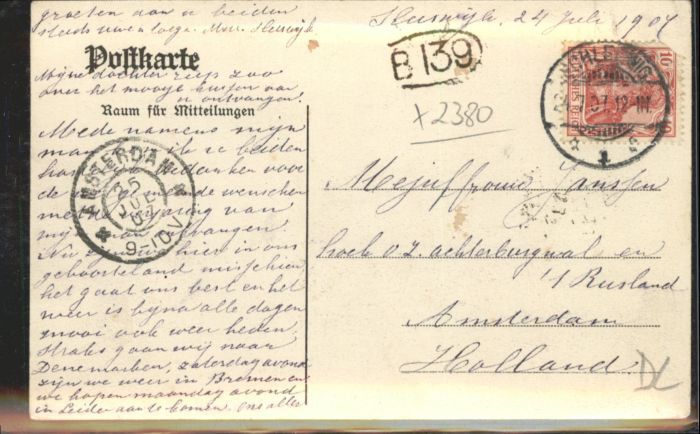 groeten aan u beiden
steeds uwe toegen. Mevr. Sleswijk
Sleswijk, 24 Juli 1907
Postkarte
Mijne dochter riep zoo
over het mooye kussen aan
u ontvangen.
Raum für Mitteilungen
B 139
+2380
SCHLESWIG
24.7.07.12-1N
1
10
10
Mede namens mijn
man u beiden
bedanken voor
de wenschen
verjaring van
mij ontvangen.
Nu zijn wij hier in ons
geboorteland misschien,
het gaat ons best en het
weer is bijna alle dagen
mooi ook weer heden.
Straks gaan wij naar
Denemarken, zaterdagavond
zijn we weer in Bremen en
we hopen maandag avond
in Leiden aan te komen. Ons aller
AMSTERDAM
25
JUL
07
9-10V
Mejuffrouw Janssen
hoek O.Z. achterburgwal en
't Rusland
Amsterdam
Holland.
DL